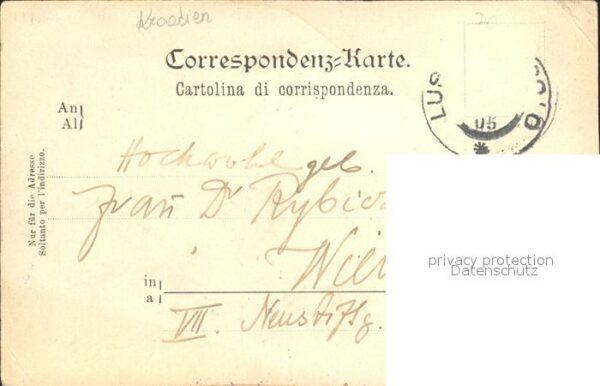 Kroatien
Correspondenz-Karte.
Cartolina di corrispondenza.
LUS
05
An
Al
Nur für die Adresse
Soltanto per l'indirizzo.
Hochwohlgeb.
Frau Dr
Wien
in
a
VII. Neustiftg.
privacy protection
Datenschutz